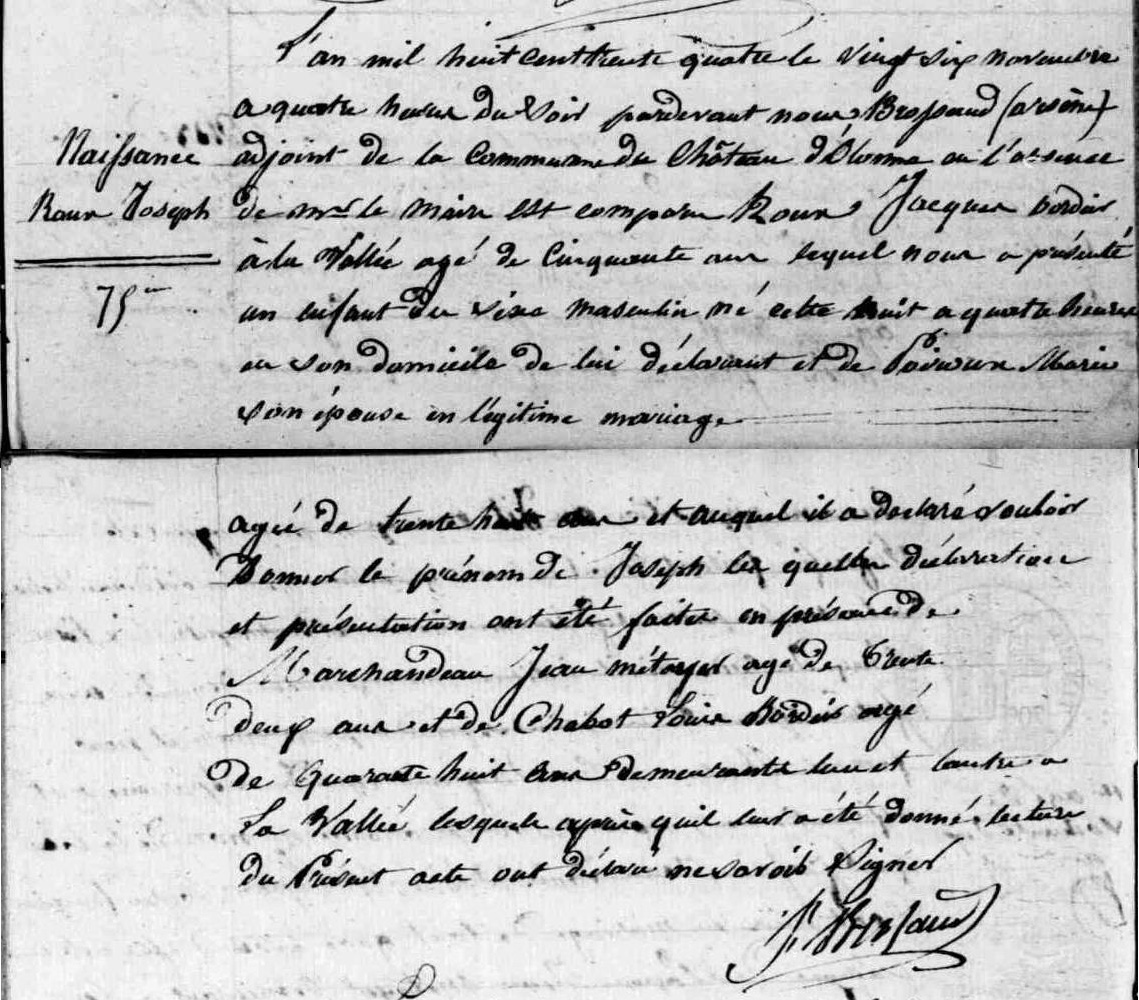 L'an mil huit cent trente quatre le vingt six novembre
a quatre heures du Soir pardevant nous Brossaud (arsène)
Naissance
adjoint de la Commune du Château d'Olonne en l'absence
Roux Joseph
de mr le Maire est comparu Roux Jacques bordier
à la Vallée agé de Cinquante ans lequel nous a présenté
75
un enfant du sexe masculin né cette nuit a quatre heures
en son domicile de lui déclarant et de Marie
son épouse en légitime mariage
agée de trente huit ans et auquel il a declaré vouloir
Donner le prénom de Joseph les quelles déclaration
et présentation ont été faites en présence de
Marchandeau Jean métayer agé de trente
deux ans et de Chabot Louis Bordier agé
de Quarante huit ans demeurants lun et lautre a
La Vallée lesquels après quil leur a été donné lecture
du Présent acte ont déclaré ne savoir Signer
Brossaud